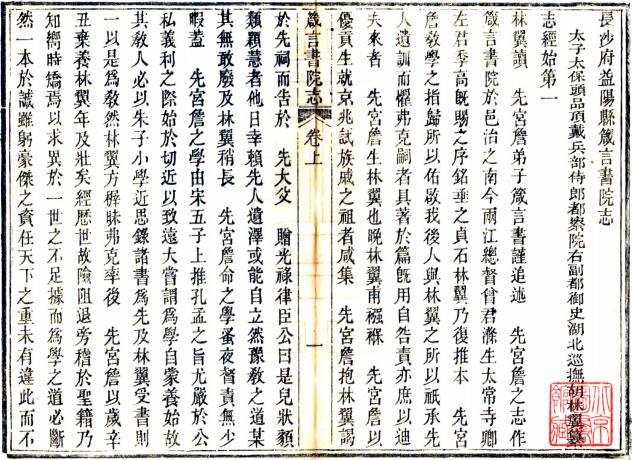 長沙府益陽縣箴言書院志
太子太保頭品頂戴兵部侍郎都察院右副都御史湖北巡撫胡林翼纂
志經始第一
林翼讀 先宮詹弟子箴言書謹追述 先宮詹之志作
箴言書院於邑治之南今兩江總督曾君滌生太常寺卿
左君季高旣賜之序銘垂之貞石林翼乃復推本 先宮
詹敎學之指歸所以佑啟我後人與林翼之所以祇承先
人遺訓而懼弗克嗣者具著於篇旣用自告責亦庶以迪
夫來者 先宮詹生林翼也晚林翼甫襁褓 先宮詹以
優貢生就京兆試族戚之祖者咸集 先宮詹抱林翼謁
箴言書院志 卷上 一
於先祠而告於 先大父 贈光祿律臣公曰是兒狀頗
類穎慧者他日幸賴先人遺澤或能自立然豫敎之道某
其無敢廢及林翼稍長 先宮詹命之學蚤夜督責無少
暇蓋 先宮詹之學由宋五子上推孔孟之旨尤嚴於公
私義利之際始於切近以致遠大嘗謂爲學自蒙養始故
其敎人必以朱子小學近思錄諸書爲先及林翼受書則
一以是爲敎然林翼方穉昧弗克率後 先宮詹以歲辛
丑棄養林翼年及壯矣經歷世故險阻退旁稽於聖籍乃
知嚮時矯焉以求異於一世之不足據而爲學之道必斷
然一本於誠雖躬豪傑之資任天下之重未有違此而不